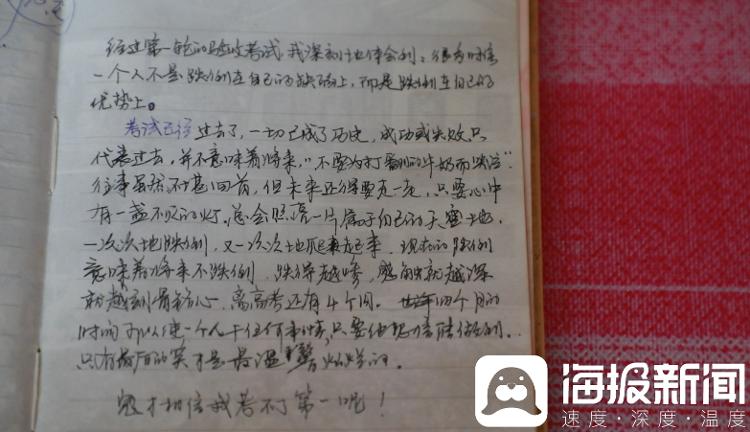 经过第一轮的验收考试,我深刻地体会到:很多时候
一个人不是跌倒在自己的缺陷上,而是跌倒在自己的
优势上。
考试已经过去了,一切已成了历史,成功或失败只
代表过去,并不意味着将来,"不要为打翻的牛奶而哭泣"
往事虽然不堪回首,但未来还得要走一走,只要心中
有一盏不灭的灯,总会照亮一片属于自己的天空土地,
一次次地跌倒,又一次次地爬起来,现在的跌倒
意味着将来不跌倒,跌得越惨,感触就越深
就越刻骨铭心,离高考还有4个月。四个月的
时间可以使一个人干任何事情,只要他想信能做到。
只有最后的笑才是最温馨灿烂的。
谁才相信我考不了第一呢!
海报新闻
速度·深度·温度